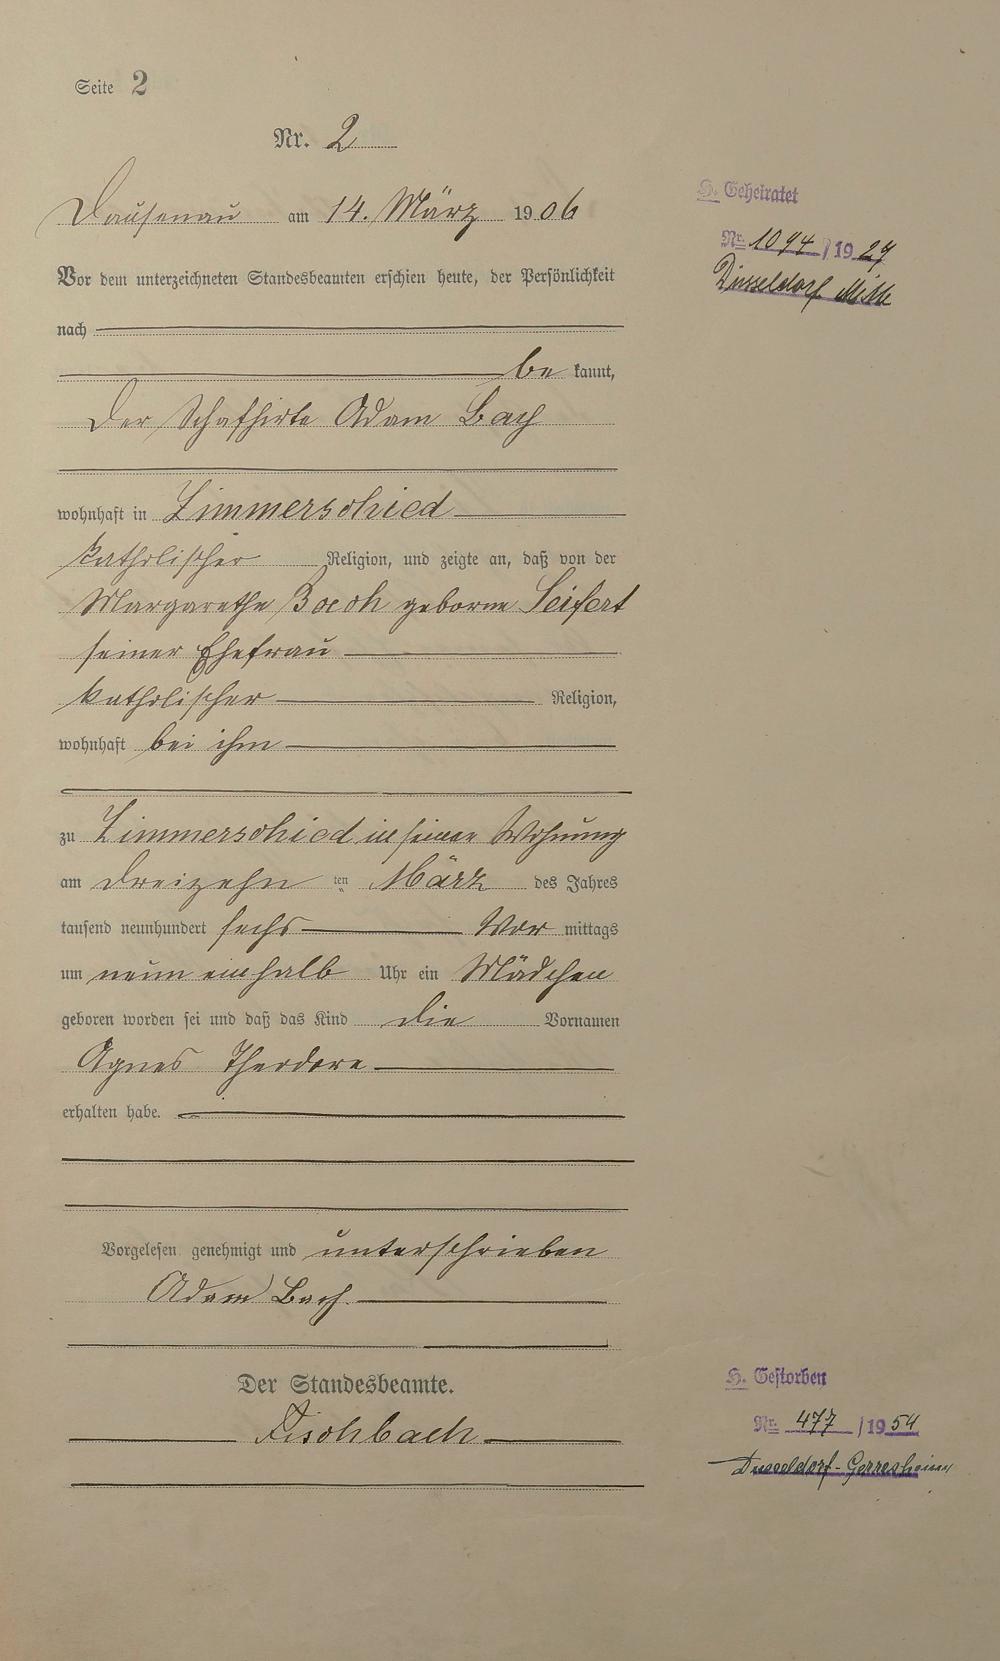 Seite 2
Nr. 2
Dausenau am 14. März 1906
Vor dem unterzeichneten Standesbeamten erschien heute, der Persönlichkeit
nach
be kannt,
Der Schafhirte Adam Bach
wohnhaft in Zimmerschied
katholischer Religion, und zeigte an, daß von der
Margarethe Bach geborne Seifert
seiner Ehefrau
katholischer Religion,
wohnhaft bei ihm
zu Zimmerschied in seiner Wohnung
am dreizehn ten März des Jahres
tausend neunhundert sechs Vor mittags
um neun einhalb Uhr ein Mädchen
geboren worden sei und daß das Kind die Vornamen
Agnes Theodore
erhalten habe.
Vorgelesen genehmigt und unterschrieben
Adam Bach.
Der Standesbeamte.
Fischbach
H. Geheiratet
Nr. 1094/1929
Düsseldorf Mitte
H. Gestorben
Nr. 477/1954
Düsseldorf-Gerresheim